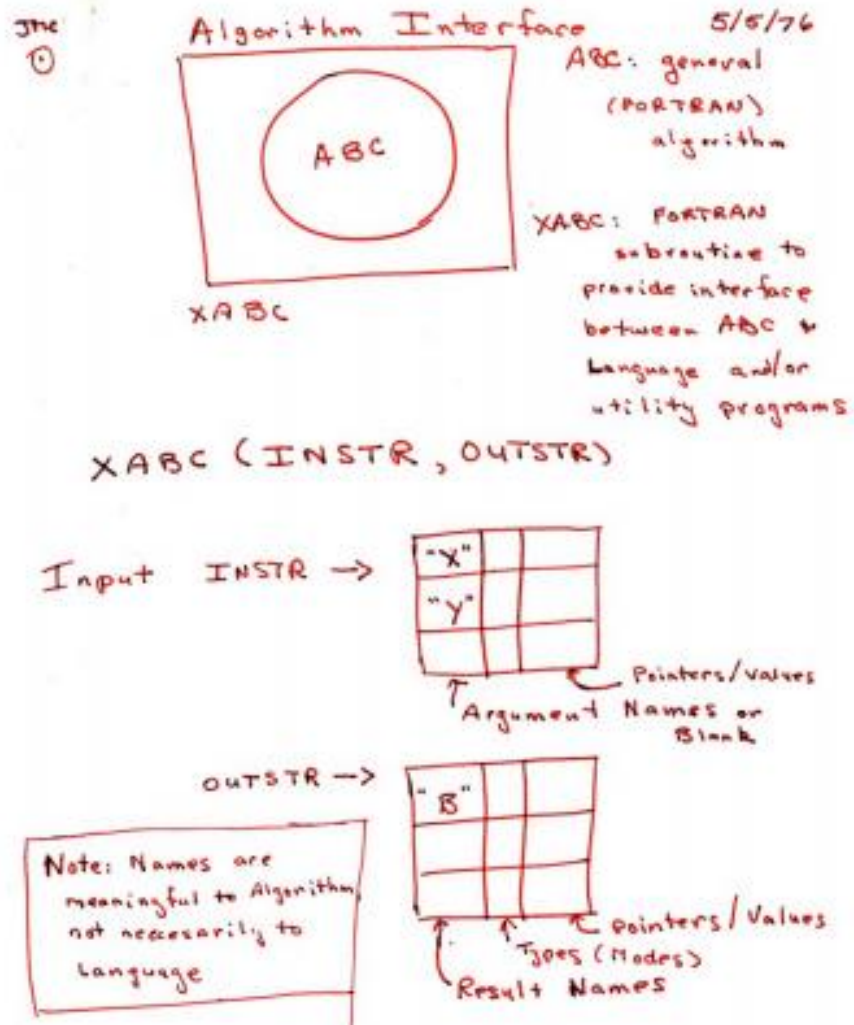 JMC
Algorithm Interface
5/5/76
ABC
XABC
ABC: general
(FORTRAN)
algorithm
XABC: FORTRAN
subroutine to
provide interface
between ABC &
Language and/or
utility programs
XABC (INSTR, OUTSTR)
Input INSTR →
"X"
"Y"
Pointers/Values
Argument Names or
Blank
OUTSTR →
"B"
Pointers/Values
Types (Modes)
Result Names
Note: Names are
meaningful to Algorithm,
not neccesarily to
Language